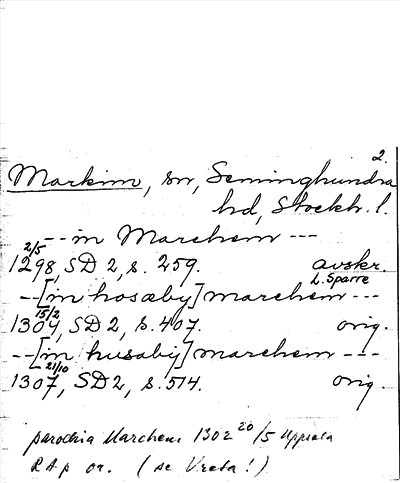 2.
Markim, sn, Seminghundra
hd, Stockh. l.
--- in Marchem ---
2/5
1298, SD 2, s. 259. avskr.
L. Sparre
-- [in hosæby] marchem ---
15/2
1304, SD 2, s. 407. orig.
--- [in husaby] marchem ---
21/10
1307, SD 2, s. 514. orig.
parochia Marchem 1302 20/5 Uppsala
RAp or. (se Vreta!)